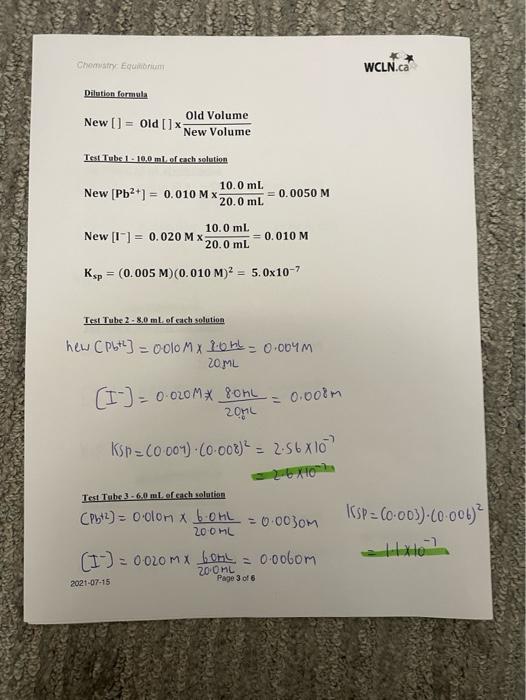 Chemistry: Equilibrium
WCLN.ca
Dilution formula
New [ ] = Old [ ] x Old Volume / New Volume
Test Tube 1 - 10.0 mL of each solution
New [Pb²⁺] = 0.010 M x 10.0 mL / 20.0 mL = 0.0050 M
New [I⁻] = 0.020 M x 10.0 mL / 20.0 mL = 0.010 M
Ksp = (0.005 M)(0.010 M)² = 5.0x10⁻⁷
Test Tube 2 - 8.0 mL of each solution
new [Pb⁺²] = 0.010 M x 8.0 mL / 20 mL = 0.004 M
[I⁻] = 0.020 M x 8.0 mL / 20 mL = 0.008 m
KSP = (0.004) · (0.008)² = 2.56 x 10⁻⁷
= 2.6 x 10⁻⁷
Test Tube 3 - 6.0 mL of each solution
[Pb⁺²] = 0.010 m x 6.0 mL / 20.0 mL = 0.0030 m
KSP = (0.003) · (0.006)²
[I⁻] = 0.020 m x 6.0 mL / 20.0 mL = 0.0060 m
= 1.1 x 10⁻⁷
2021-07-15
Page 3 of 6